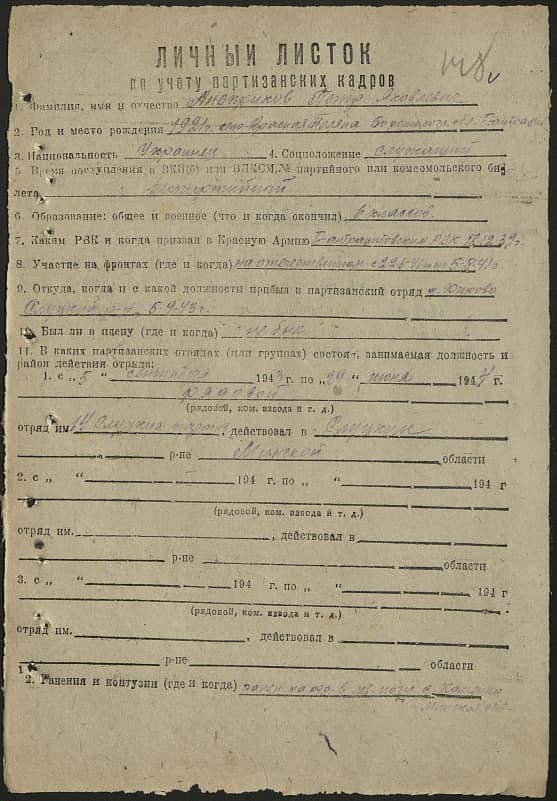 ЛИЧНЫЙ ЛИСТОК
по учету партизанских кадров
1. Фамилия, имя и отчество Петр Яковлевич
2. Год и место рождения 1921г. село Красная Поляна
3. Национальность Украинец 4. Соцположение служащий
5. Время поступления в ВКП(б) или ВЛКСМ, № партийного или комсомольского би-
лета беспартийный
6. Образование: общее и военное (что и когда окончил) 6 классов.
7. Каким РВК и когда призван в Красную Армию РВК 12.12.39г.
8. Участие на фронтах (где и когда) на отечественной с 22.6.
9. Откуда, когда и с какой должности прибыл в партизанский отряд д.
Слуцкий р-н 5.9.43г.
10. Был ли в плену (где и когда) не был
11. В каких партизанских отрядах (или группах) состоял, занимаемая должность и
район действия отряда:
1. с „5 “ сентября 1943 г. по „29 “ июня 1944 г.
рядовой
(рядовой, ком. взвода и т. д.)
отряд им. 14 Слуцких партиз , действовал в Слуцком
р-не Минской области
2. с „ “ 194 г. по „ “ 194 г
(рядовой, ком. взвода и т. д.)
отряд им. , действовал в
р-не области
3. с „ “ 194 г. по „ “ 194 г
(рядовой, ком. взвода и т. д.)
отряд им. , действовал в
р-не области
12. Ранения и контузии (где и когда) ранен
Минской обл.